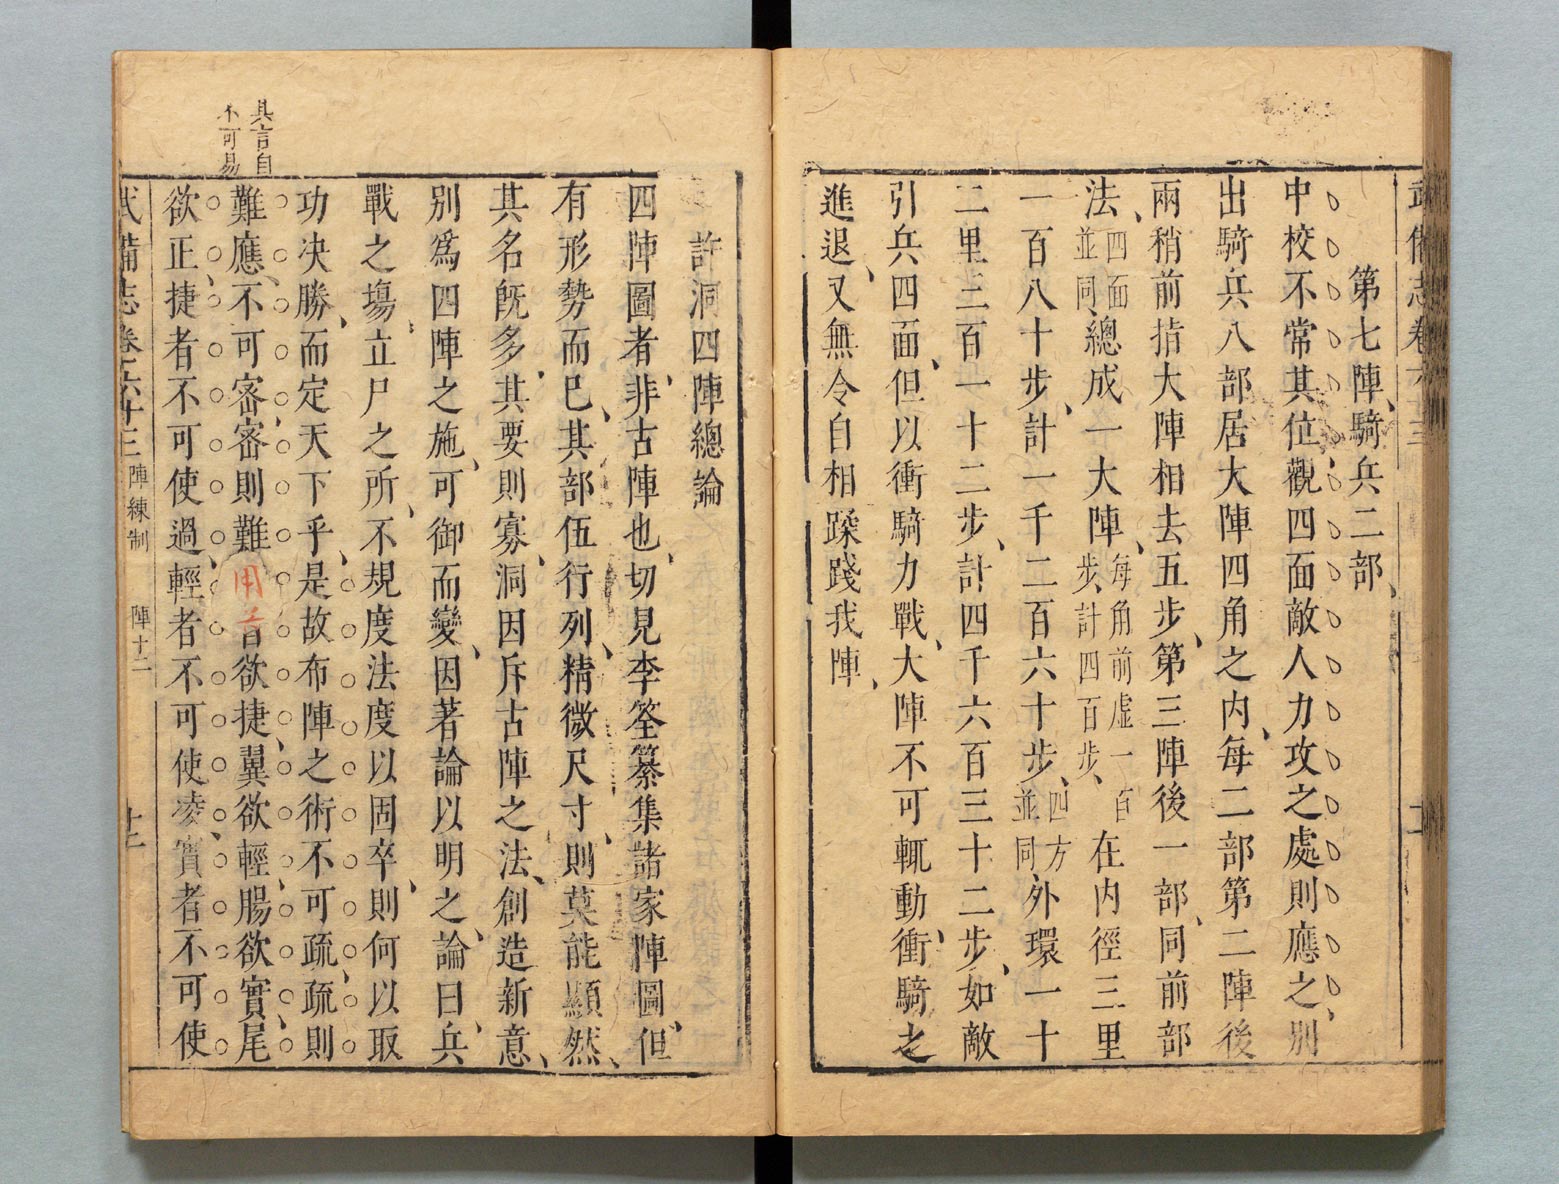 武備志卷六十三
第七陣、騎兵二部、
中校不常其位觀四面敵人力攻之處則應之、別
出騎兵八部居大陣四角之内、每二部第二陣後
兩稍前指大陣相去五步、第三陣後一部、同前部
法、四面並同、總成一大陣、每角前虛一百步、計四百步、在内徑三里
一百八十步、計一千二百六十步、四方並同、外環一十
二里二百一十二步、計四千六百三十二步、如敵
引兵四面、但以衝騎力戰、大陣不可輒動、衝騎之
進退、又無令自相蹂踐我陣、
許洞四陣總論
四陣圖者、非古陣也、切見李筌纂集諸家陣圖、但
有形勢而已、其部伍行列、精微尺寸、則莫能顯然、
其名旣多、其要則寡、洞因斥古陣之法、創造新意、
別爲四陣之施、可御而變、因著論以明之、論曰、兵
戰之塲、立尸之所、不規度法度以固卒、則何以取
功决勝、而定天下乎、是故布陣之術不可疏、疏則
難應、不可審、審則難用、首欲捷、翼欲輕、腸欲實、尾
欲正、捷者不可使過、輕者不可使凌、實者不可使
其言自
不可易
武備志卷六十三 陣練制 陣十二 十二